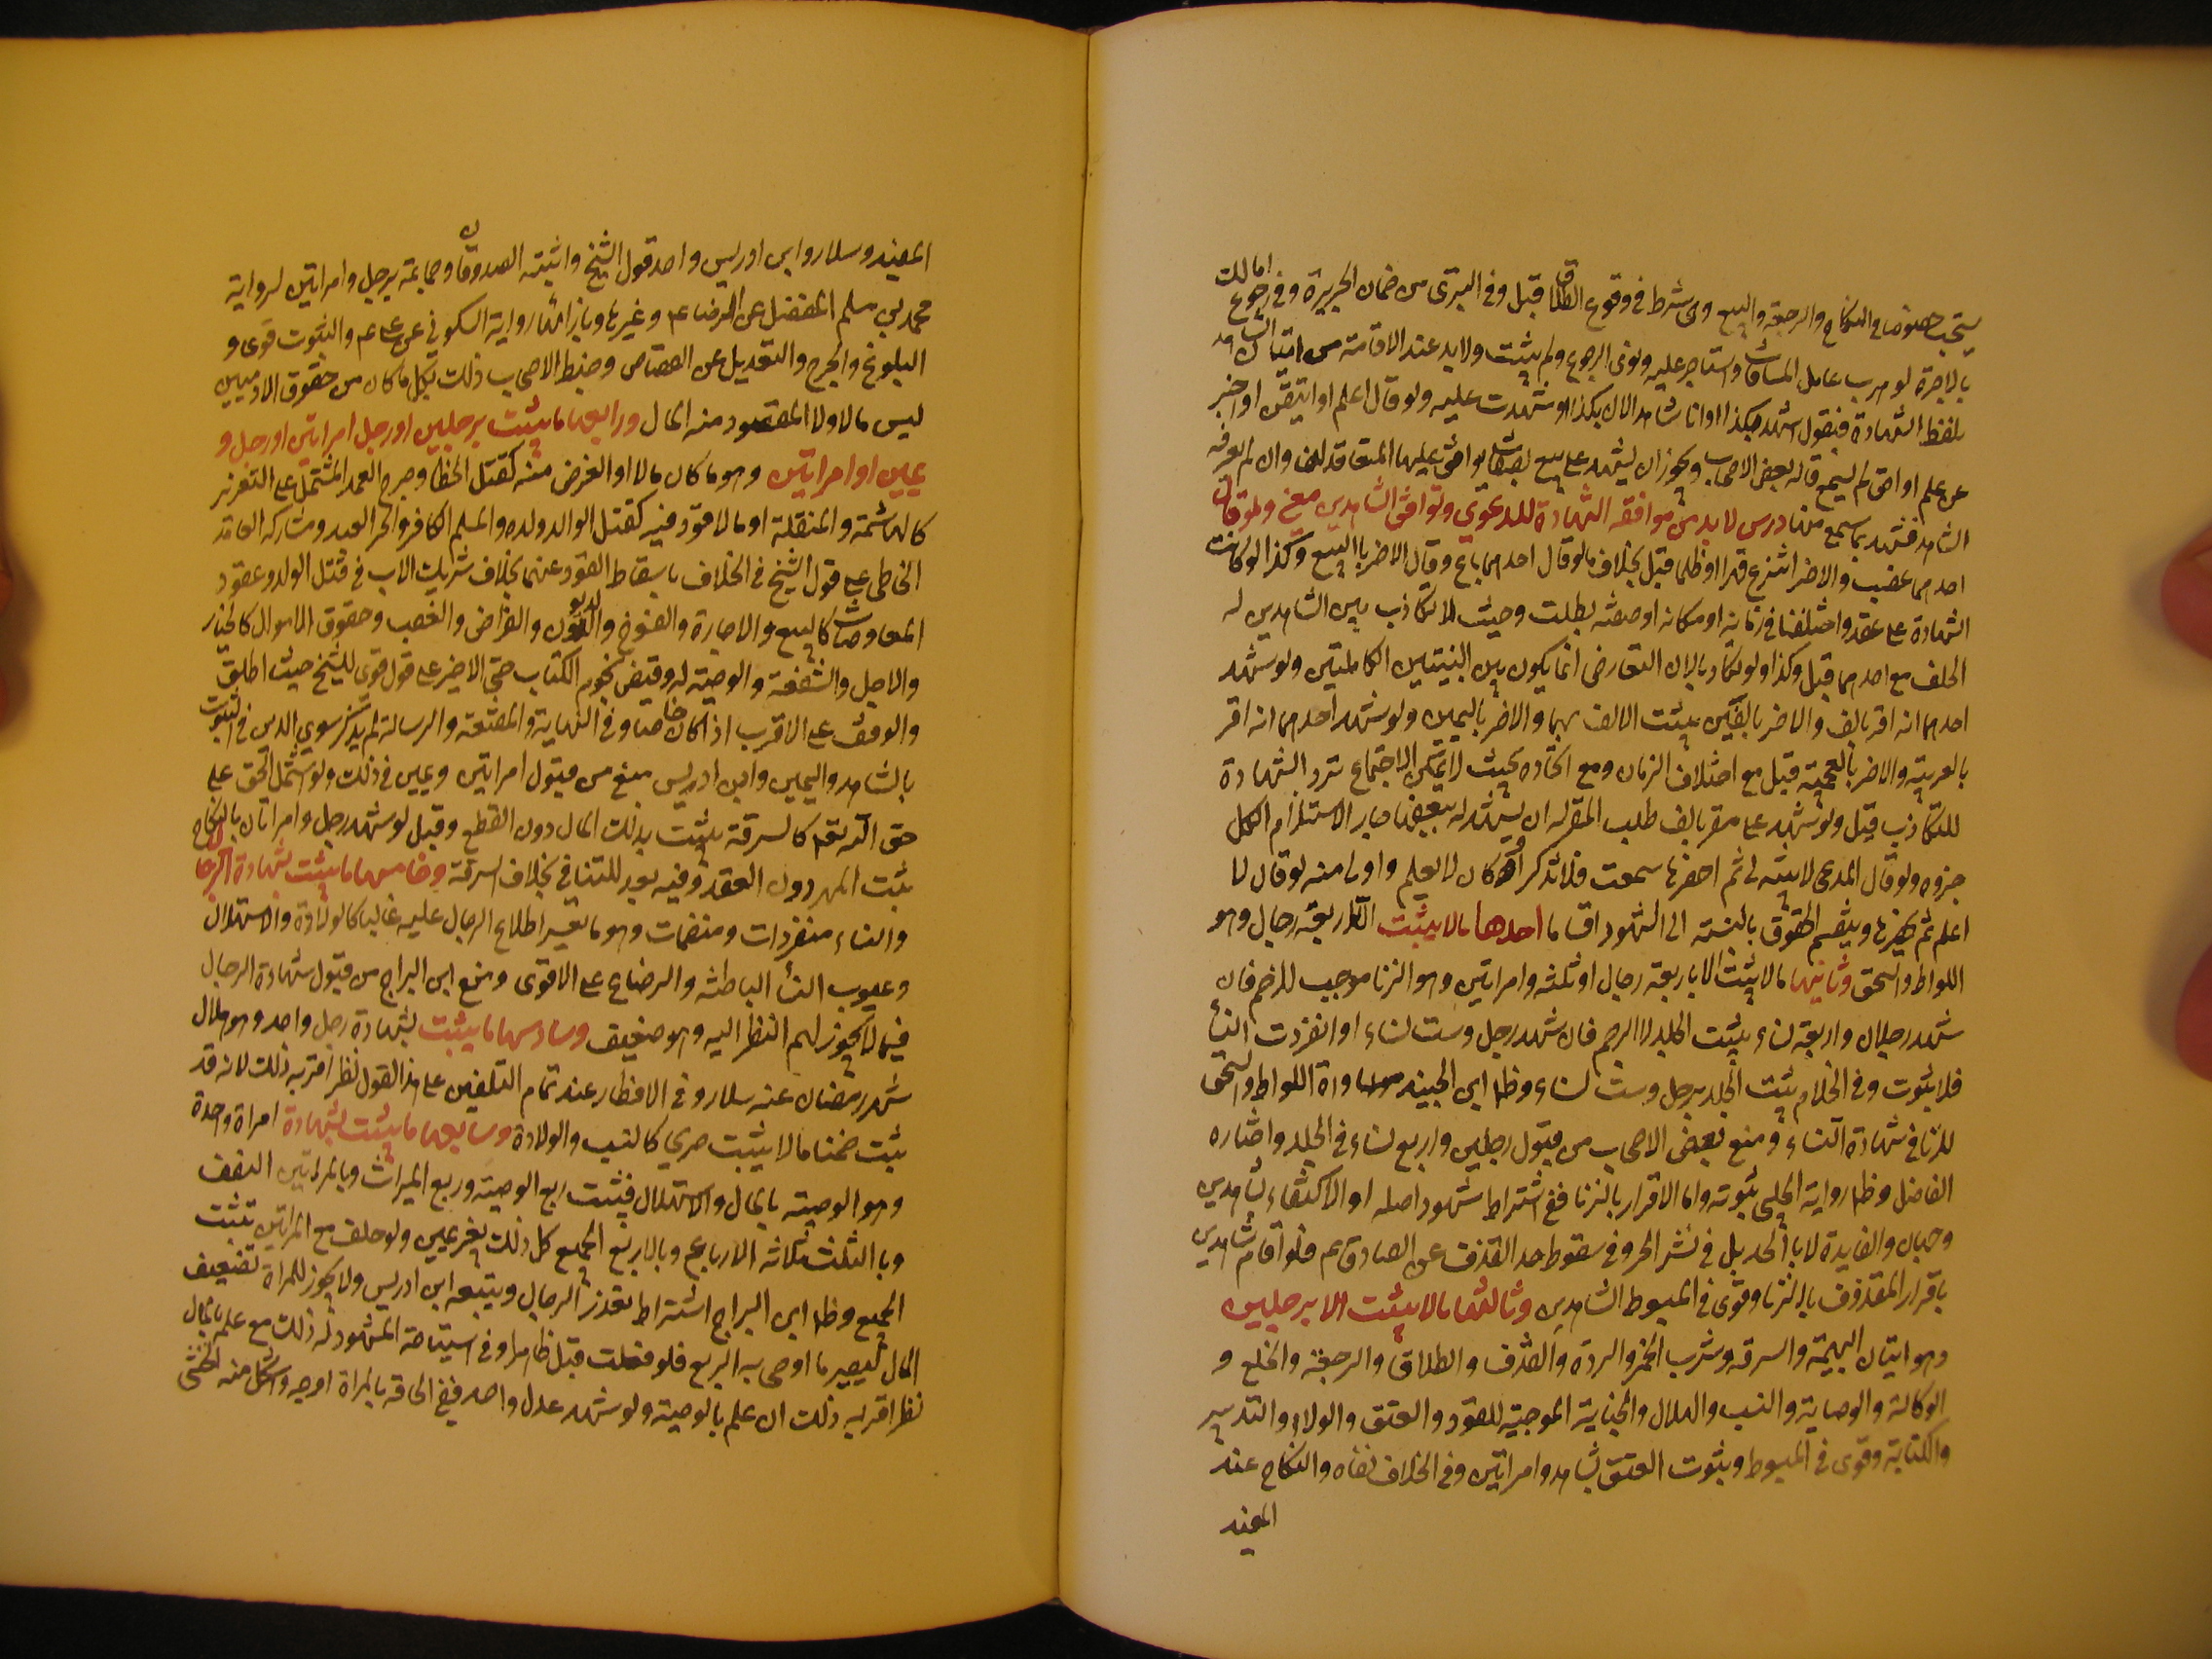 يستحب خصوصا في النكاح والرجعة والبيع وهي شرط في وقوع الطلاق قيل وفي التبري من ضمان الجريرة وفي رجوع المالك
بالاجرة لو هرب عامل المساقات واستاجر عليه ونوى الرجوع ولم يثبت ولا بد عند الاقامة من اتيان الشاهد
بلفظ الشهادة فيقول اشهد بكذا او انا شاهد الان بكذا او شهدت عليه ولو قال اعلم او اتيقن او اخبر
عن علم او احق لم يسمع قاله بعض الاصحاب ويجوز ان يشهد على مبيع بصفات يوافق عليها المتعاقدان وان لم يعرفه
الشاهد فيشهد بما سمع منهما درس لا بد من موافقة الشهادة للدعوى وتوافق الشاهدين معنى فلو قال
احدهما غصب والاخر انتزع قهرا او ظلما قبل بخلاف ما لو قال احدهما باع وقال الاخر اقر بالبيع وكذا لو كانت
الشهادة على عقد واختلفا في زمانه او مكانه او صفته بطلت وحيث لا تكاذب بين الشاهدين له
الحلف مع احدهما قيل وكذا ولو تكاذبا لان التعارض انما يكون بين البينتين الكاملتين ولو شهد
احدهما انه اقر بالف والاخر بالفين يثبت الالف بهما والاخر باليمين ولو شهد احدهما انه اقر
بالعربية والاخر بالعجمية قبل مع اختلاف الزمان ومع اتحاده بحيث لا يمكن الاجتماع ترد الشهادة
للتكاذب قيل ولو شهد على مقر بالف طلب المقر له ان يشهد له ببعضها جاز لاستلزام الكل
جزوه ولو قال المدعي لا بينة لي ثم احضرها سمعت فلا تذكر او كان لا يعلم واولى منه لو قال لا
اعلم ثم يحضرها وينقسم الحقوق بالنسبة الى الشهود اقساما احدها ما لا يثبت الا باربعة رجال وهو
اللواط والسحق وثانيها ما لا يثبت الا باربعة رجال او ثلثة وامراتين وهو الزنا موجب للرجم فان
شهد رجلان واربعة نساء يثبت الجلد لا الرجم فان شهد رجل وست نساء او انفردت النساء
فلا ثبوت وفي الخلاف يثبت الجلد برجل وست نساء وظاهر ابن الجنيد مساواة اللواط والسحق
للزنا في شهادة النساء ومنع بعض الاصحاب من قبول رجلين واربع نساء في الجلد واختاره
الفاضل وظاهر رواية الحلبي ثبوته واما الاقرار بالزنا ففي اشتراط شهود اصله او الاكتفاء بشاهدين
وجهان والفايدة لا بالحد بل في نشر الحرمة وفي سقوط حد القذف عن الصادق عم فلو اقام شاهدين
باقرار المقذوف بالزنا وقوى في المبسوط الشاهدين وثالثها ما لا يثبت الا برجلين
وهو اتيان البهيمة والسرقة وشرب الخمر والردة والقذف والطلاق والرجعة والخلع و
الوكالة والوصاية والنسب والهلال والجناية الموجبة للقود والعتق والولاء والتدبير
والكتابة وقوى في المبسوط وثبوت العتق بشاهد وامراتين وفي الخلاف نفاه والنكاح عند
المفيد
المفيد وسلار وابن ادريس واحد قول الشيخ واثبته الصدوقان وجماعة برجل وامراتين لرواية
محمد بن مسلم المفضل عن الرضا عم وغيرها وبازائها رواية السكوني عن علي عم والثبوت قوى و
البلوغ والجرح والتعديل عن القصاص وضبط الاصحاب ذلك بكل ما كان من حقوق الادميين
ليس مالا ولا المقصود منه المال ورابعها ما يثبت برجلين او رجل امراتين او رجل و
يمين او امراتين وهو ما كان مالا او الغرض منه كقتل الخطا وجرح العمد المشتمل على التغرير
كالهاشمة والمنقلة او ما لا قود فيه كقتل الوالد ولده والمسلم الكافر والحر العبد وشاركه العامد
الخاطي على قول الشيخ في الخلاف باسقاط القود عنهما بخلاف شريك الاب في قتل الولد وعقود
المعاوضات كالبيع والاجارة والفسوخ والديون والقراض والغصب وحقوق الاموال كالخيار
والاجل والشفعة والوصية له وقبض نجوم الكتاب حتى الاخير على قول قوى للشيخ حيث اطلق
والوقف على الاقرب اذا كان خاصا وفي النهاية والمقنعة والرسالة لم يذكر سوى الدين في الثبوت
بالشاهد واليمين وابن ادريس منع من قبول امراتين ويمين في ذلك ولو اشتمل الحق على
حق الله تعم كالسرقة يثبت بذلك المال دون القطع وقيل لو شهد رجل وامراتان بالنكاح
يثبت المهر دون العقد وفيه بعد للتنافي بخلاف السرقة وخامسها ما يثبت بشهادة الرجال
والنساء منفردات ومنضمات وهو ما يعسر اطلاع الرجال عليه غالبا كالولادة والاستهلال
وعيوب النساء الباطنة والرضاع على الاقوى ومنع ابن البراج من قبول شهادة الرجال
فيما لا يجوز لهم النظر اليه وهو ضعيف وسادسها ما يثبت بشهادة رجل واحد وهو هلال
شهر رمضان عند سلار وفي الافطار عند تمام الثلثين على هذا القول نظر اقربه ذلك لانه قد
يثبت ضمنا ما لا يثبت صريحا كالنسب والولادة وسابعها ما يثبت بشهادة امراة واحدة
وهو الوصية بالمال والاستهلال فيثبت ربع الوصية وربع الميراث وبالمراتين النصف
وبالثلث ثلاثة الارباع وبالاربع الجميع كل ذلك بغير يمين ولو حلف مع المراتين تثبت
الجميع وظاهر ابن البراج اشتراط تعذر الرجال ويتبعه ابن ادريس ولا يجوز للمراة تضعيف
المال ليصير ما اوصى به الربع فلو فعلت قبل ظاهرا وفي استباحة المشهود له ذلك مع علمه بالحال
نظر اقربه ذلك ان علم بالوصية ولو شهد عدل واحد ففي الحاقه بالمراة اوجه واشكل منه الخنثى